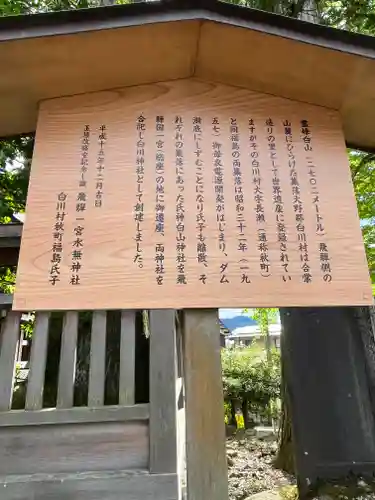 霊峰白山(二七〇二メートル)飛騨側の
山麓にひらけた集落大野郡白川村は合掌
造りの里として世界遺産に登録されてい
ますがその白川村大字長瀬(通称秋町)
と同福島の両集落は昭和三十二年(一九
五七)御母衣電源開発がはじまり、ダム
湖底にしずむことになり氏子も離散、そ
れぞれの集落にあった天神白山神社を飛
騨国一宮(臨座)の地に御遷座、両神社を
合祀し白川神社として創建しました。
平成十五年十二月吉日
玉垣改修を記念し誌
飛驒一宮水無神社
白川村秋町福島氏子